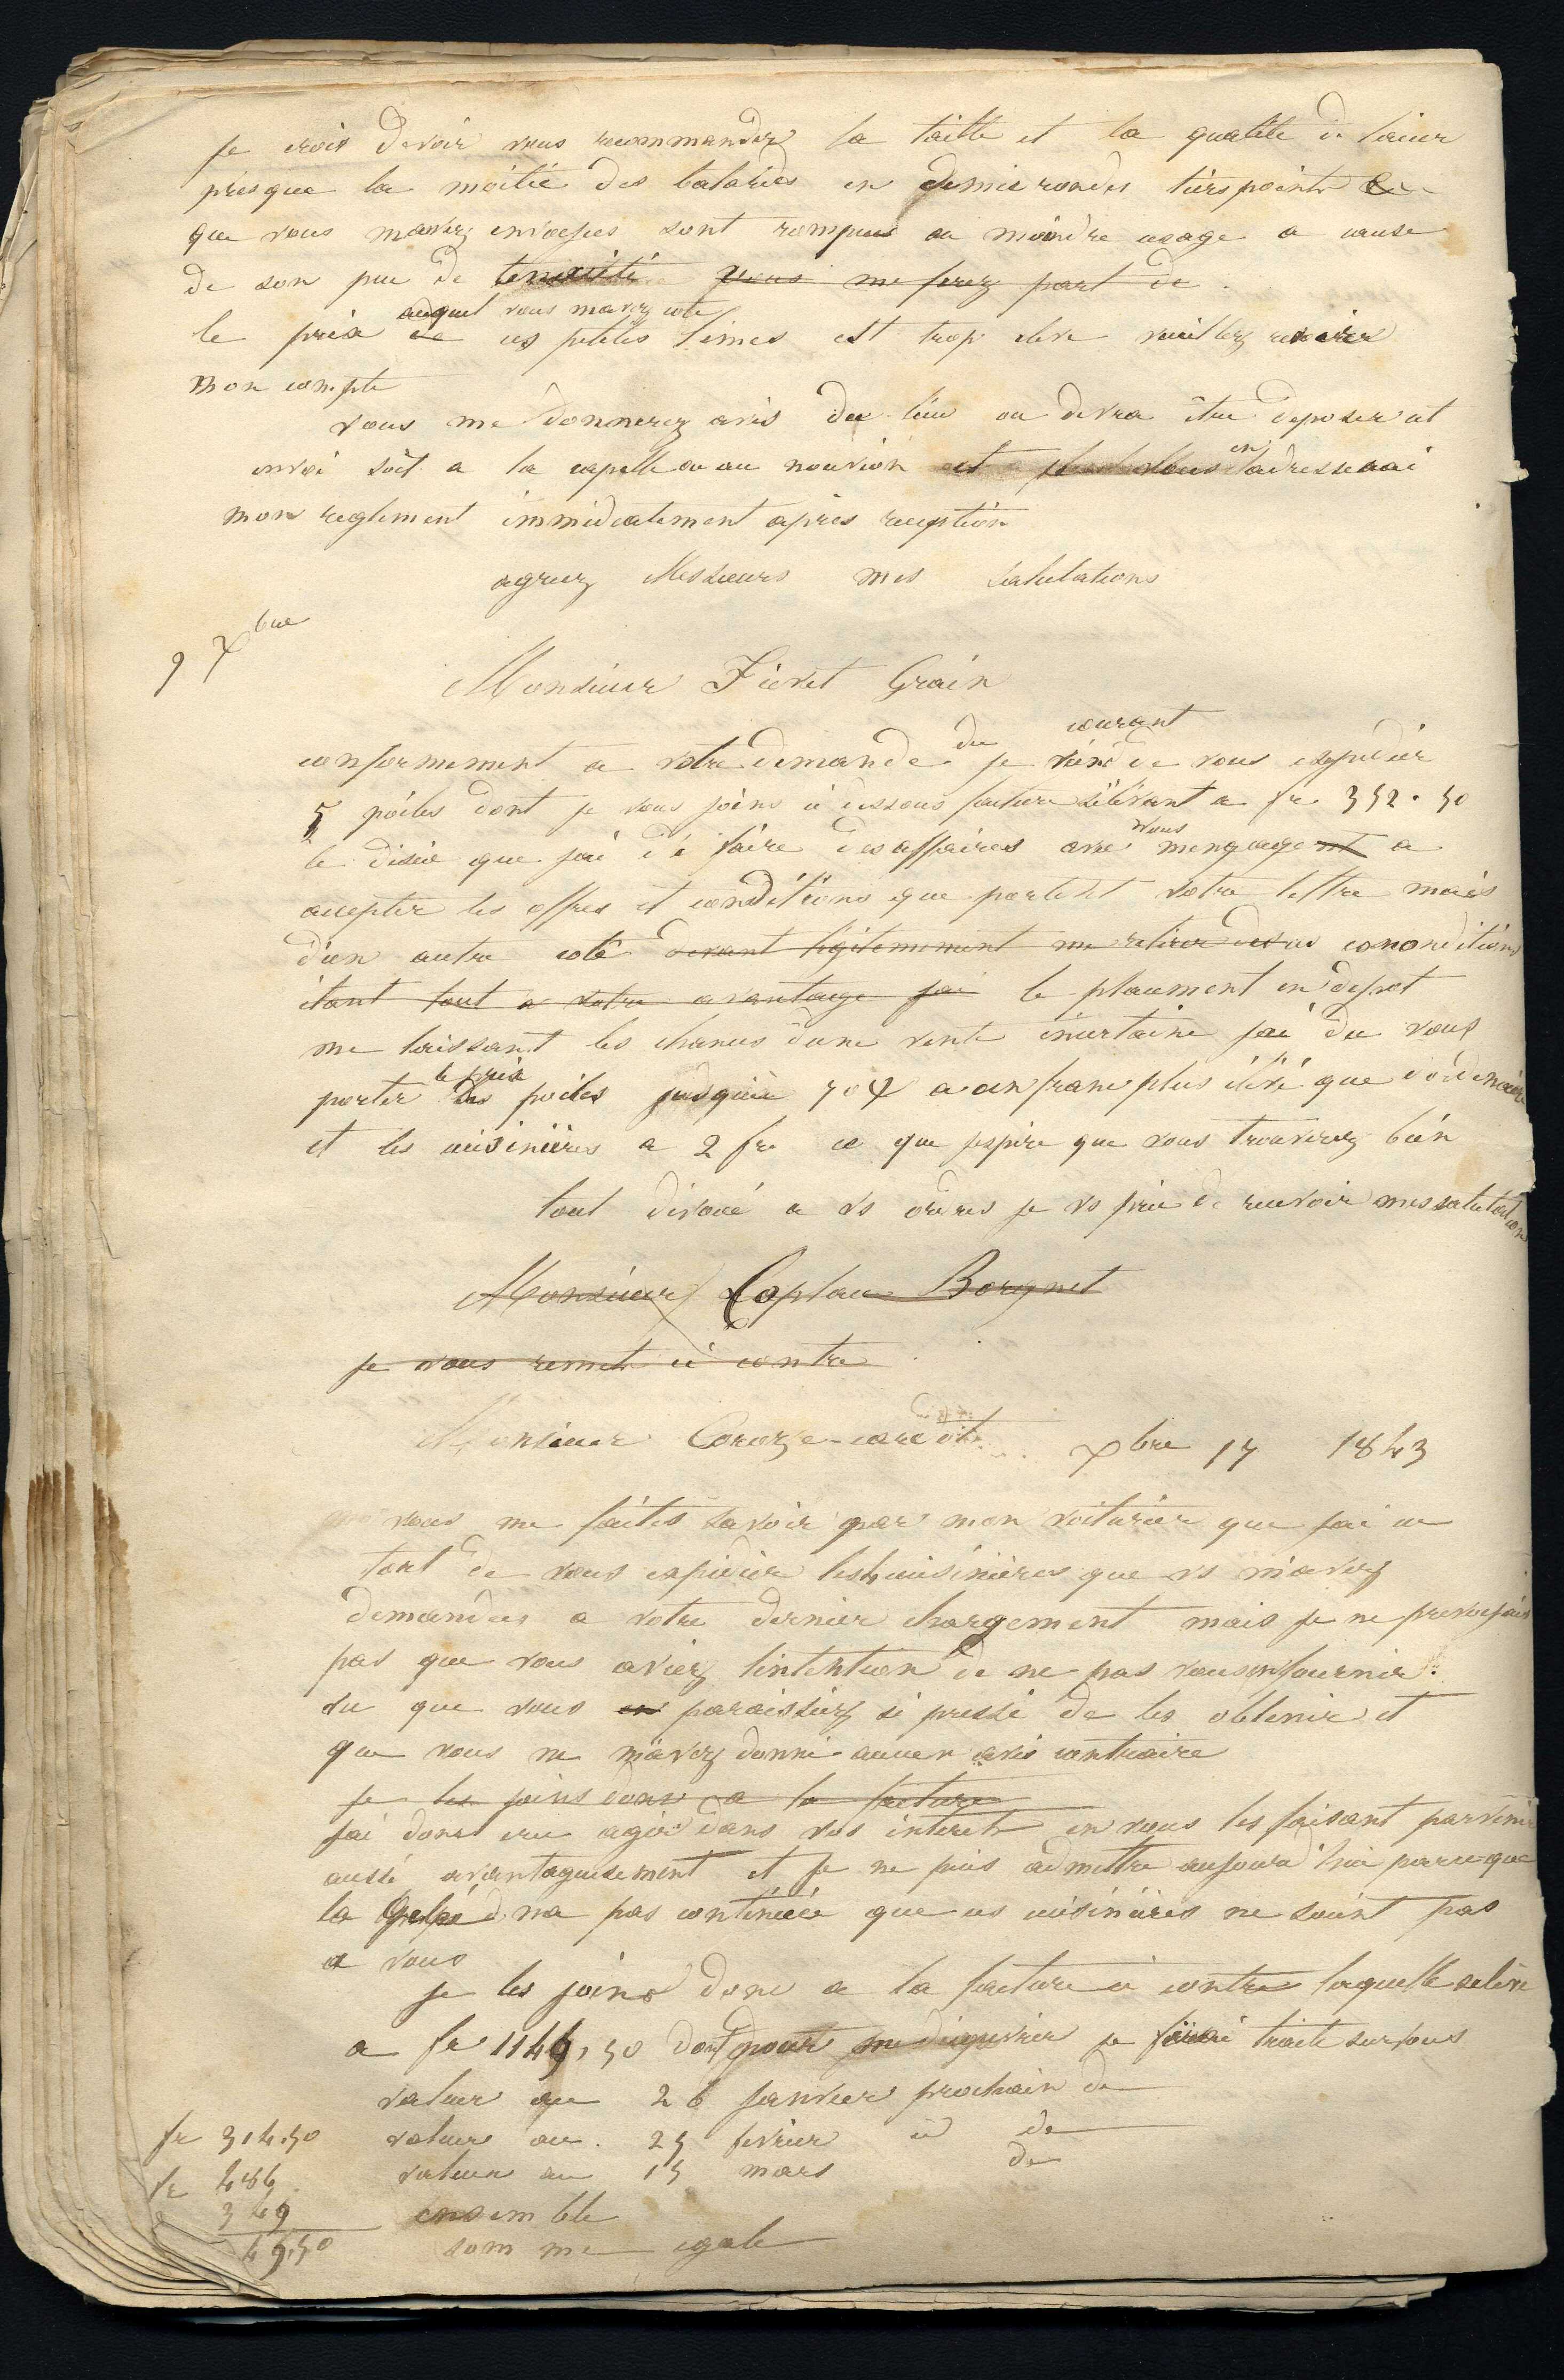 je crois devoir vous recommander la taille et la qualité de lacier
presque la moitié des batardes en demie rondes tiers points &
que vous mavez envoyées sont rompues au moindre usage a cause
de son peu de tenacité vous me ferez part de
auquel vous mavez coté
le prix de ces petites limes est trop élevé veuillez revoir
mon compte
vous me donnerez avis du lieu ou devra être deposer cet
envoi soit a la capelle ou au nouvion et je vous en adresserai
mon reglement immediatement après reception
agreez Messieurs mes salutations
9 Xbre
Monsieur Fievet Grain
conformement a votre demande du courant je viens de vous expedier
5 poëles dont je vous joins ci dessous facture s'élevant a fr 352.50
le désir que jai de faire des affaires avec vous mengage a
accepter les offres et conditions que portent votre lettre mais
d'un autre coté me retirer conditions
étant tout a votre avantage jai le placement en depot
me laissant les chances dune vente incertaine jai du vous
porter le prix des poëles jusquà a un franc plus élevé que dordinaire
et les cuisinières a 2 fr ce que jespère que vous trouverez bien
tout dévoué a vs ordres je vs prie de recevoir mes salutations
Monsieur Laplace Borgnet
je vous remet ci contre
Monsieur
Xbre 17 1843
vous me faites savoir par mon voiturier que jai eu
tort de vous expedier les 4 cuisinières que vs m'avez
demandées a votre dernier chargement mais je ne prevoyais
pas que vous aviez lintention de ne pas vous en fournir
vu que vous en paraissiez si pressé de les obtenir et
que vous ne m'avez donné aucun avis contraire
je les joins donc a la facture
jai donc cru agir dans vos interets en vous les faisant parvenir
aussi avantageusement et je ne puis admettre aujourd'hui parceque
la gelée na pas continuée que ces cuisinières ne soient pas
a vous
je les joins donc a la facture ci contre laquelle selève
a fr 1149,50 dont pour je traite sur vous
valeur au 26 janvier prochain de
fr 314.50 valeur au 25 fevrier id de
fr 486 valeur au 15 mars de
349 ensemble
49.50 somme egale